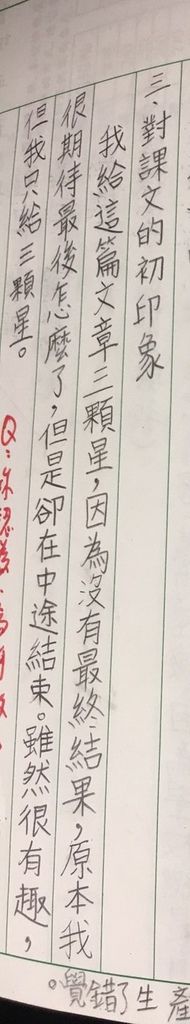 三、對課文的初印象
我給這篇文章三顆星，因為沒有最終結果，原本我
很期待最後怎麼了，但是卻在中途結束。雖然很有趣，
但我只給三顆星。
產生了錯覺。